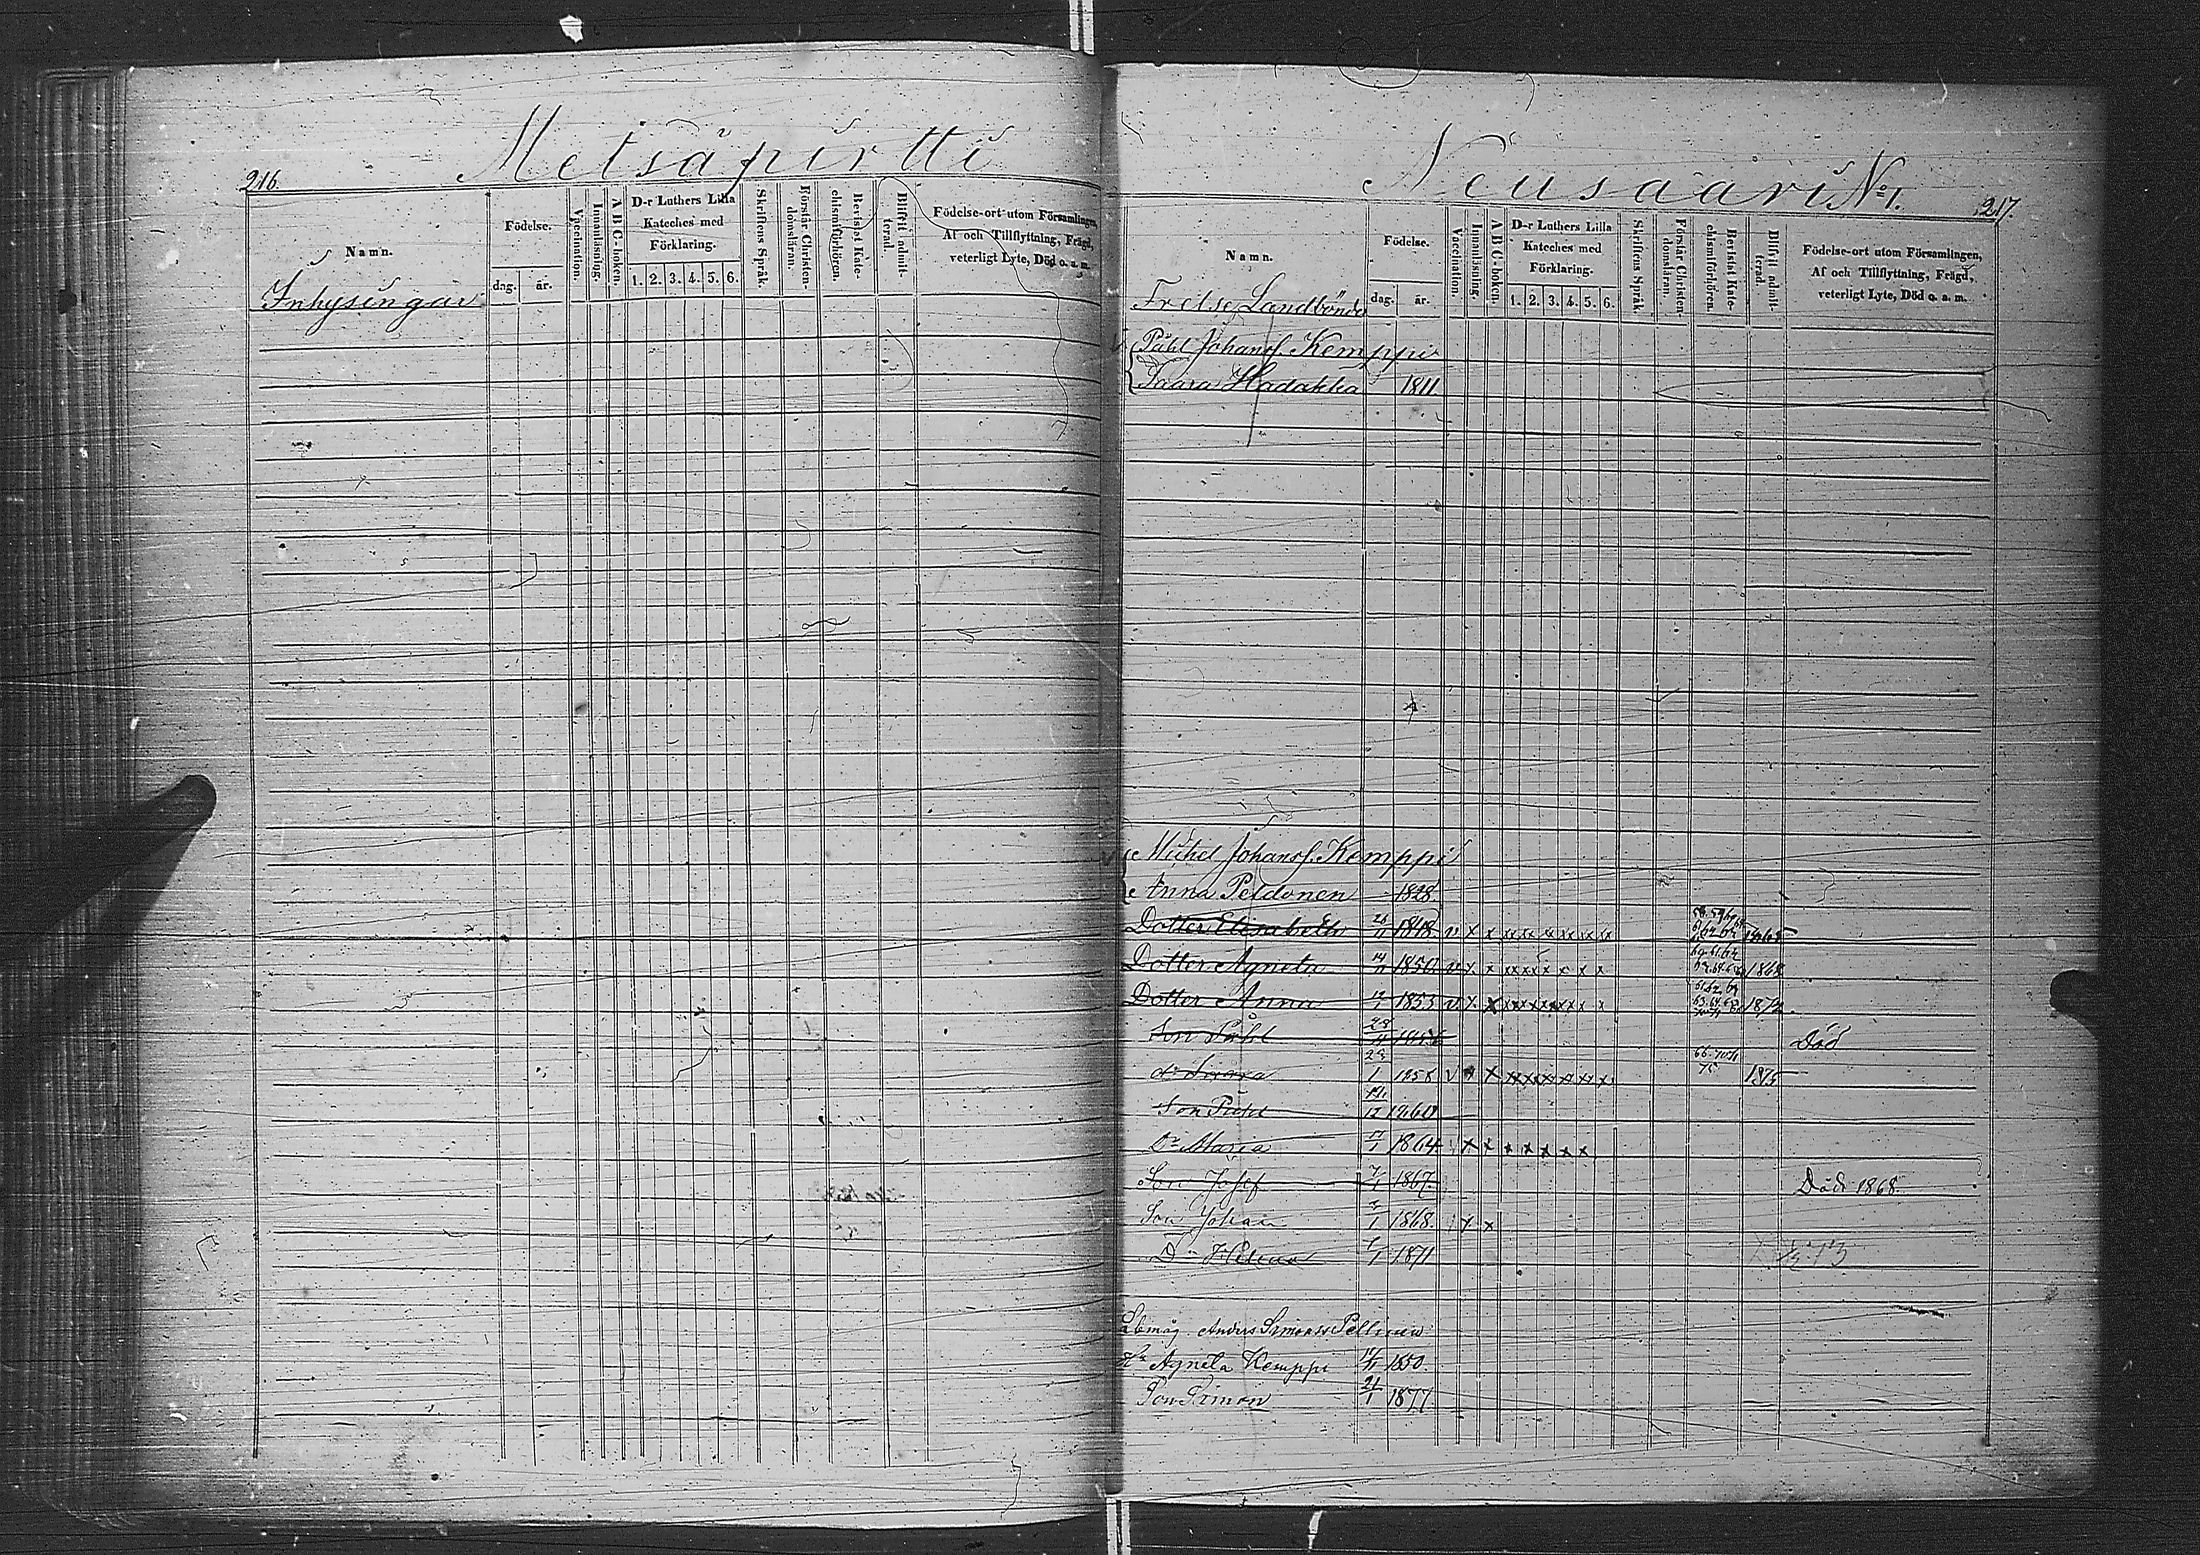 Metsäpirtti
216.
Namn. Födelse. dag. år. Vaccination. Innanläsning. A B C-boken. D-r Luthers Lilla Kateches med Förklaring. 1. 2. 3. 4. 5. 6. Skriftens Språk. Förstår Christendomsläran. Bevistat Katechismiförhören. Blifvit admitterad. Födelse-ort utom Församlingen, Af och Tillflyttning, Frägd, veterligt Lyte, Död o. a. m.
Inhysingar
Neusaari No 1.
217.
Namn. Födelse. dag. år. Vaccination. Innanläsning. A B C-boken. D-r Luthers Lilla Kateches med Förklaring. 1. 2. 3. 4. 5. 6. Skriftens Språk. Förstår Christendomsläran. Bevistat Katechismiförhören. Blifvit admitterad. Födelse-ort utom Församlingen, Af och Tillflyttning, Frägd, veterligt Lyte, Död o. a. m.
Frälse Landbönder
Påhl Johansf. Kemppi
Saara Hadakka 1811.
Michel Johansf. Kemppi
Anna Peldonen 1828.
Dotter Elisabeth 1848 v x x x x x x x x 1865
Dotter Agneta 14/11 1850 v x x x x x x x x 1868
Dotter Anna 1853 v x x x x x x x x 1872
Son Påhl Död
dr Saara 23/1 1858 v x x x x x x x x 75 1875
Son Påhl 12 1860
Dr Maria 1864 x x x x x x x
Son Josef 1867 Död 1868.
Son Johan 1868. x x
Dr Helena 1871
Anders Simonss Pellinen
Hu Agneta Kemppi 14/11 1850.
Son Simon 21/1 1877